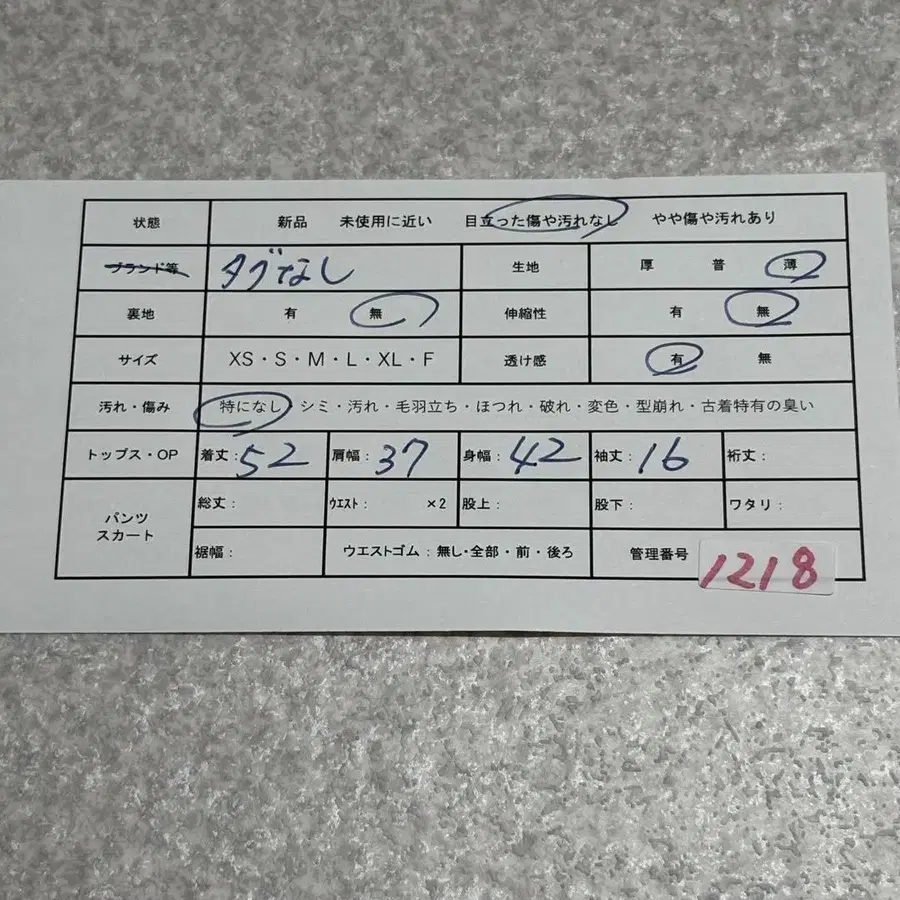 状態 新品 未使用に近い 目立った傷や汚れなし やや傷や汚れあり
ブランド等 タグなし 生地 厚 普 薄
裏地 有 無 伸縮性 有 無
サイズ XS・S・M・L・XL・F 透け感 有 無
汚れ・傷み 特になし・シミ・汚れ・毛羽立ち・ほつれ・破れ・変色・型崩れ・古着特有の臭い
トップス・OP 着丈:52 肩幅:37 身幅:42 袖丈:16 裄丈:
パンツ
スカート
総丈: ウエスト: ×2 股上: 股下: ワタリ:
裾幅: ウエストゴム:無し・全部・前・後ろ 管理番号 1218